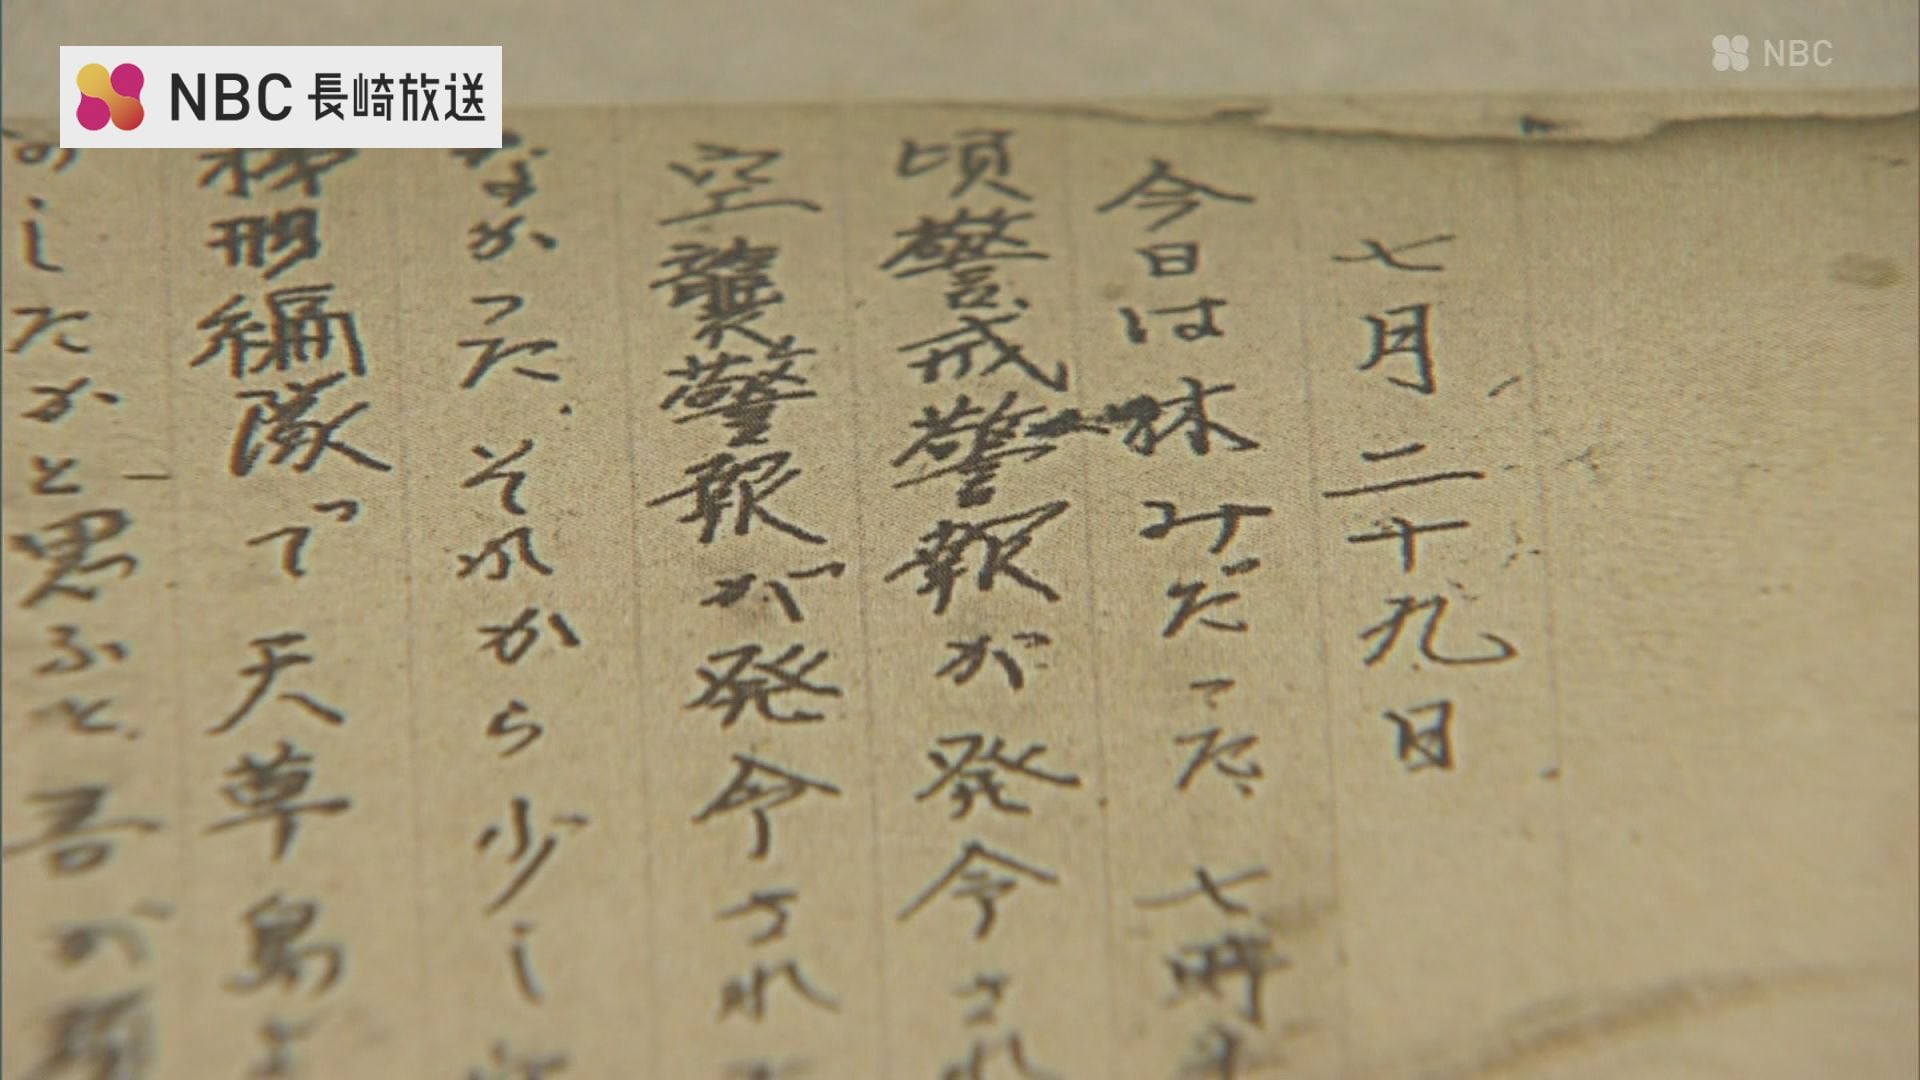 NBC 長崎放送
NBC
七月二十九日
今日は休みだった、七時半
頃警戒警報が発令され
空襲警報が発令され
なかった、それから少し
梯形編隊で天草島よ
のしたかと思ふと、吾が